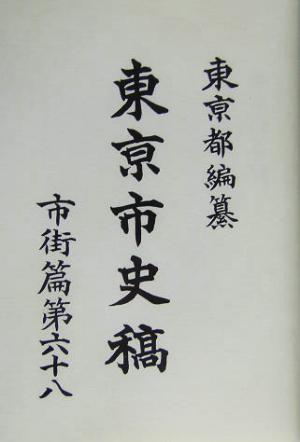 東亰都編纂
東亰市史稿
市街篇第六十八